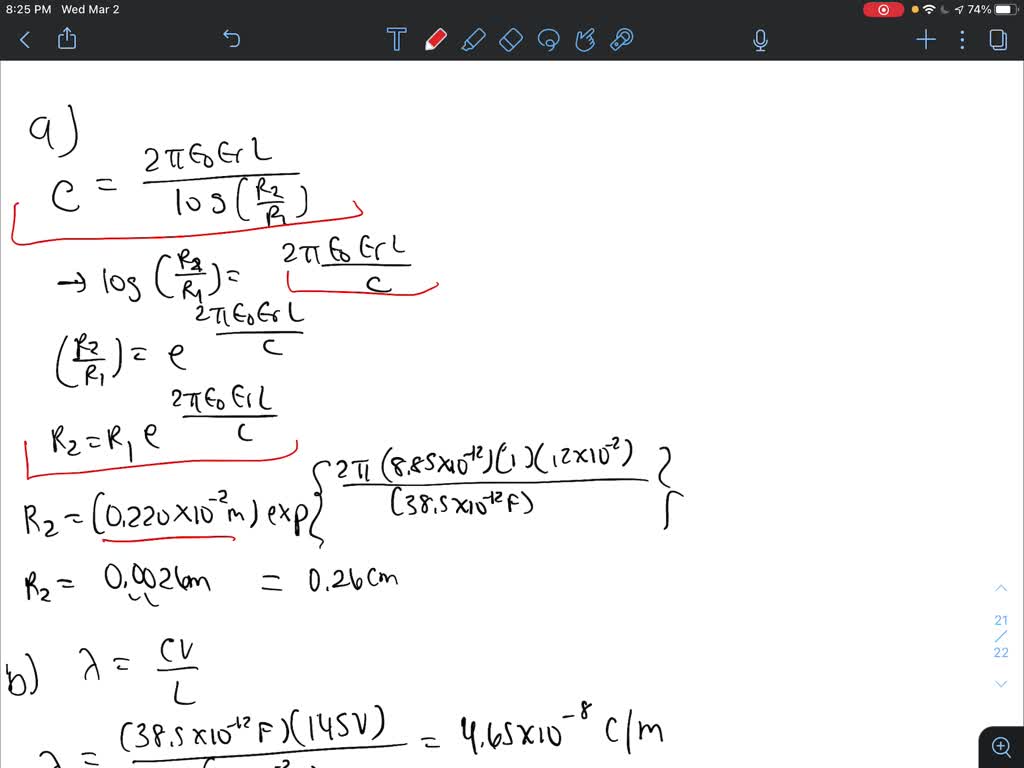 8:25 PM Wed Mar 2
74%
a)
C = 2π ϵ₀ ϵr L / log(R2/R1)
→ log(R2/R1) = 2π ϵ₀ ϵr L / C
(R2/R1) = e^(2π ϵ₀ ϵr L / C)
R2 = R1 e^(2π ϵ₀ ϵr L / C)
R2 = (0.220×10⁻²m) exp{ 2π (8.85×10⁻¹²)(1)(12×10⁻²) / (38.5×10⁻¹²F) }
R2 = 0.0026m = 0.26cm
b) λ = CV / L
λ = (38.5×10⁻¹²F)(145V) = 4.65×10⁻⁸ C/m
21
/
22